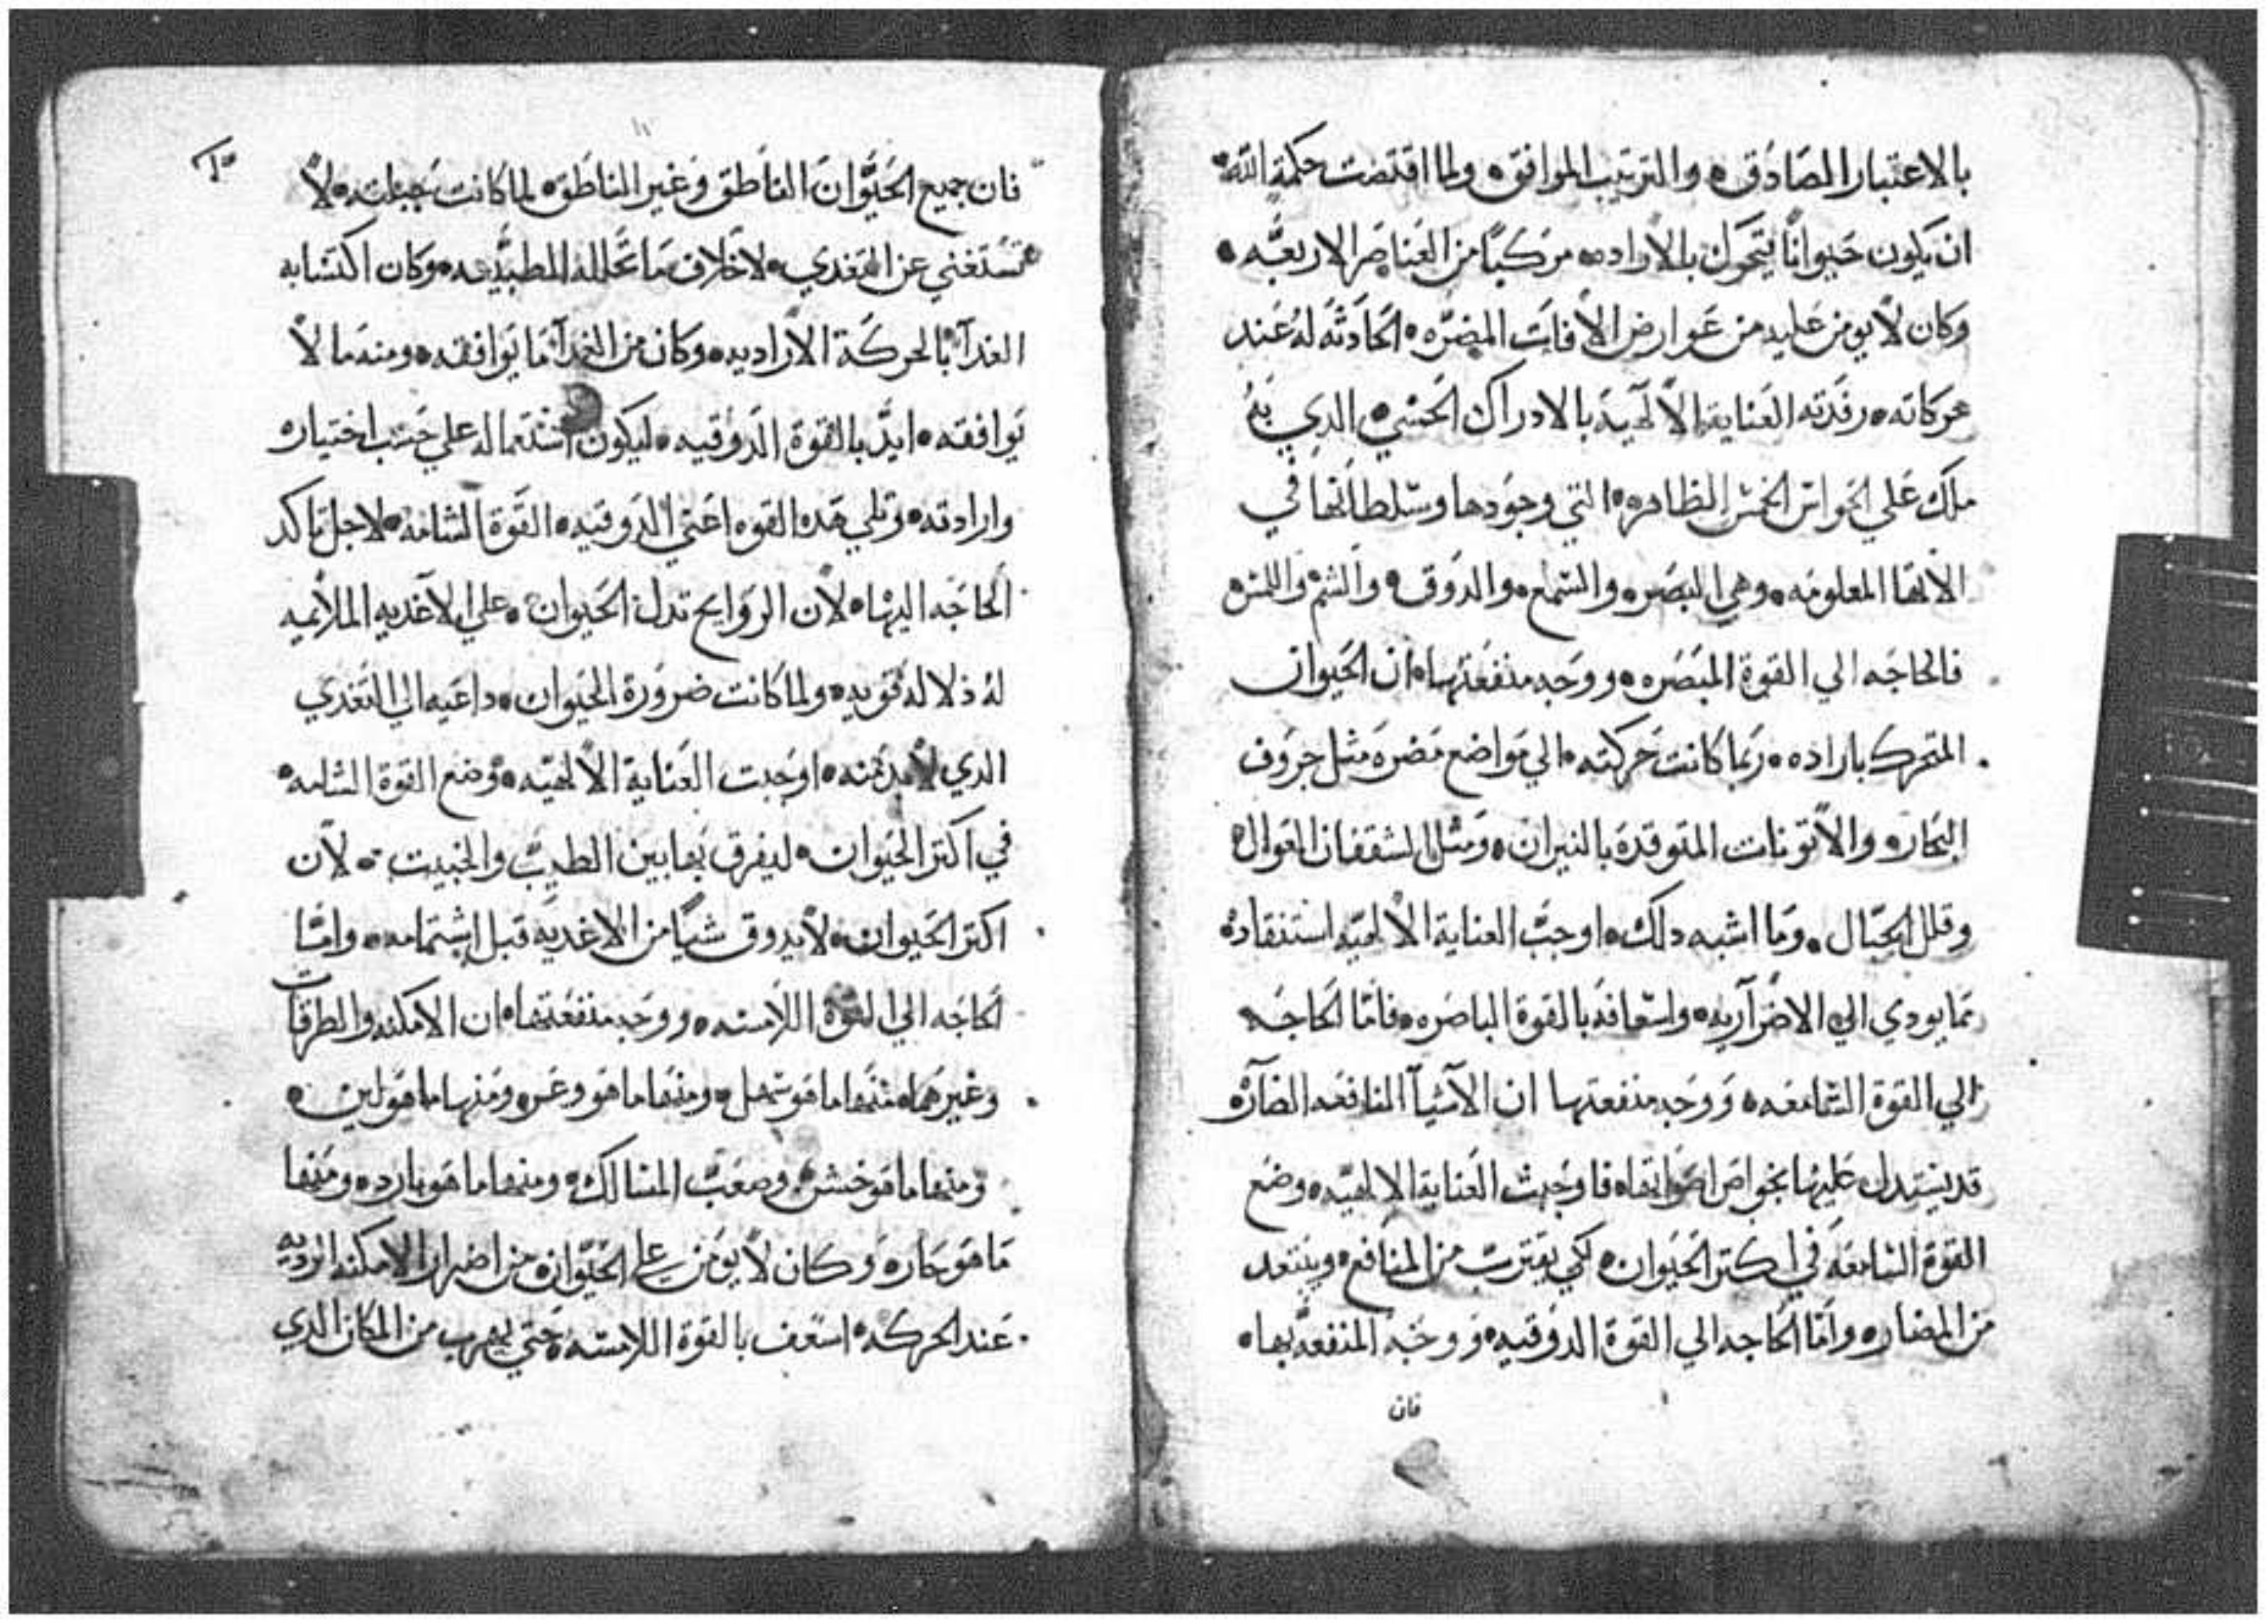 بالاعتبار الصادق ه والترتيب الموافق ه ولما اقتضت حكمة الله
ان يكون حيوانًا يتحرك بالاراده ه مركبًا من العناصر الاربعه ه
وكان لا يومن عليه من عوارض الافات المضره ه الحادثه له عند
حركاته ه رفدته العناية الالهية بالادراك الحسي ه الدي يتم
ملك علي الحواس الخمس الظاهره ه التي وجودها وسلطانها في
الاتها المعلومه ه وهي البصر ه والسمع ه والدوق ه والشم واللمس ه
فالحاجه الي القوة المبصره ه ووجه منفعتها ه ان الحيوان
المتحرك باراده ه ربما كانت حركته ه الي مواضع مضره مثل جروف
البحار ه والاتونات المتوقدة بالنيران ه ومثل الشقفان العوال ه
وقلل الجبال ه وما اشبه دلك ه اوجبت العناية الالهيه استنقاده
مما يودي الي الاضرآر به ه واسعافه بالقوة الباصره ه فامّا الحاجه
الي القوة السامعه ه ووجه منفعتها ان الآشيآ النافعه الضآره
قد يستدل عليها بخواص اصواتها ه فاوجبت العناية الالهيه ه وضع
القوة السامعه في اكتر الحيوان ه لكي يقترب من المنافع ه ويبتعد
من المضار ه وامّا الحاجه الي القوة الدوقيه ه ووجه المنفعه بها ه
فان
فان جميع الحيوان الناطق وغير الناطق ه لما كانت جبلته ه لا
تستغني عن التغدي ه لاخلاف ما تحلله الطبيعه ه وكان اكتسابه
الغدآ بالحركة الاراديه ه وكان من الغدآ ما يوافقه ه ومنه ما لا
يوافقه ه ايدّ بالقوة الدوقيه ه ليكون استعماله علي حسب اختياره
وارادته ه وتلي هده القوه اعني الدوقيه ه القوة الشامه ه لاجل تاكد
الحاجه اليها ه لان الروايح تدل الحيوان ه علي الاغديه الملايميه
له دلاله قويه ه ولما كانت ضرورة الحيوان ه داعيه الي التغدي
الدي لا بد منه ه اوجبت العناية الالهيه ه وضع القوة الشامه ه
في اكتر الحيوان ه ليفرق بها بين الطيب والخبيت ه لان
اكتر الحيوان ه لا يدوق شيًا من الاغديه قبل اشتمامه ه وامّا
الحاجه الي القوة اللامسه ه ووجه منفعتها ه ان الامكنه والطرقات
وغيرها ه منها ما هو سهل ه ومنها ما هو وعر ه ومنها ما هو لين ه
ومنها ما هو خشن ه وصعب المسالك ه ومنها ما هو بارد ه ومنها
ما هو حار ه وكان لا يومن علي الحيوان ه من اضرار الامكنه الرديه
عند الحركه ه اسعف بالقوة اللامسه ه حتي يهرب من المكان الدي